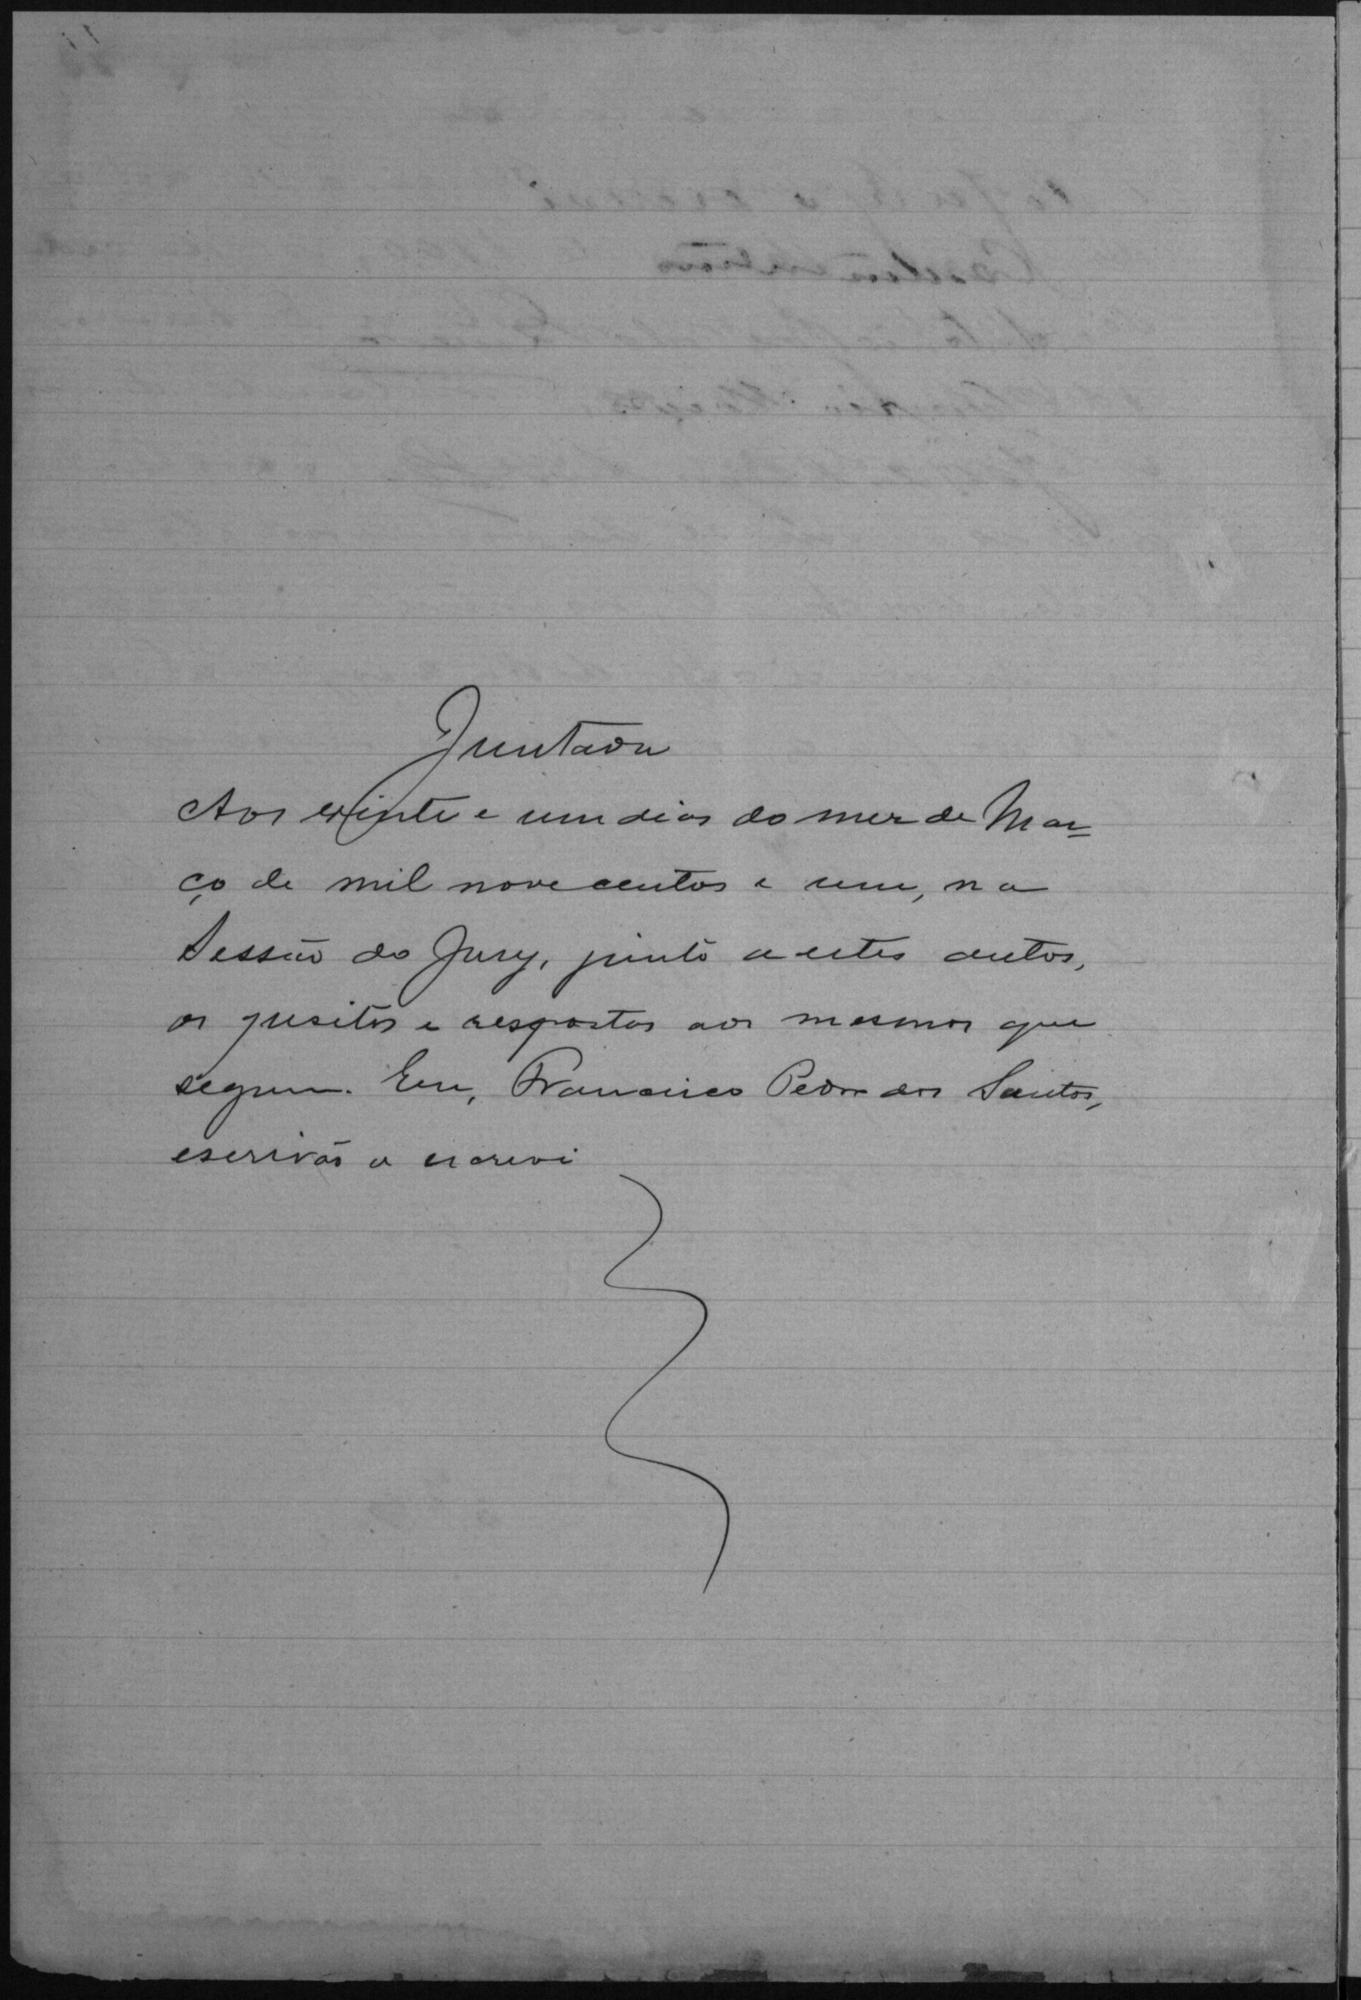 Juntada
Aos vinte e um dias do mez de Mar=
ço de mil nove centos e um, na
Sessão do Jury, junto a estes autos,
os quesitos e respostas aos mesmos que
seguem. Eu, Francisco Pedro dos Santos,
escrivão o escrevi